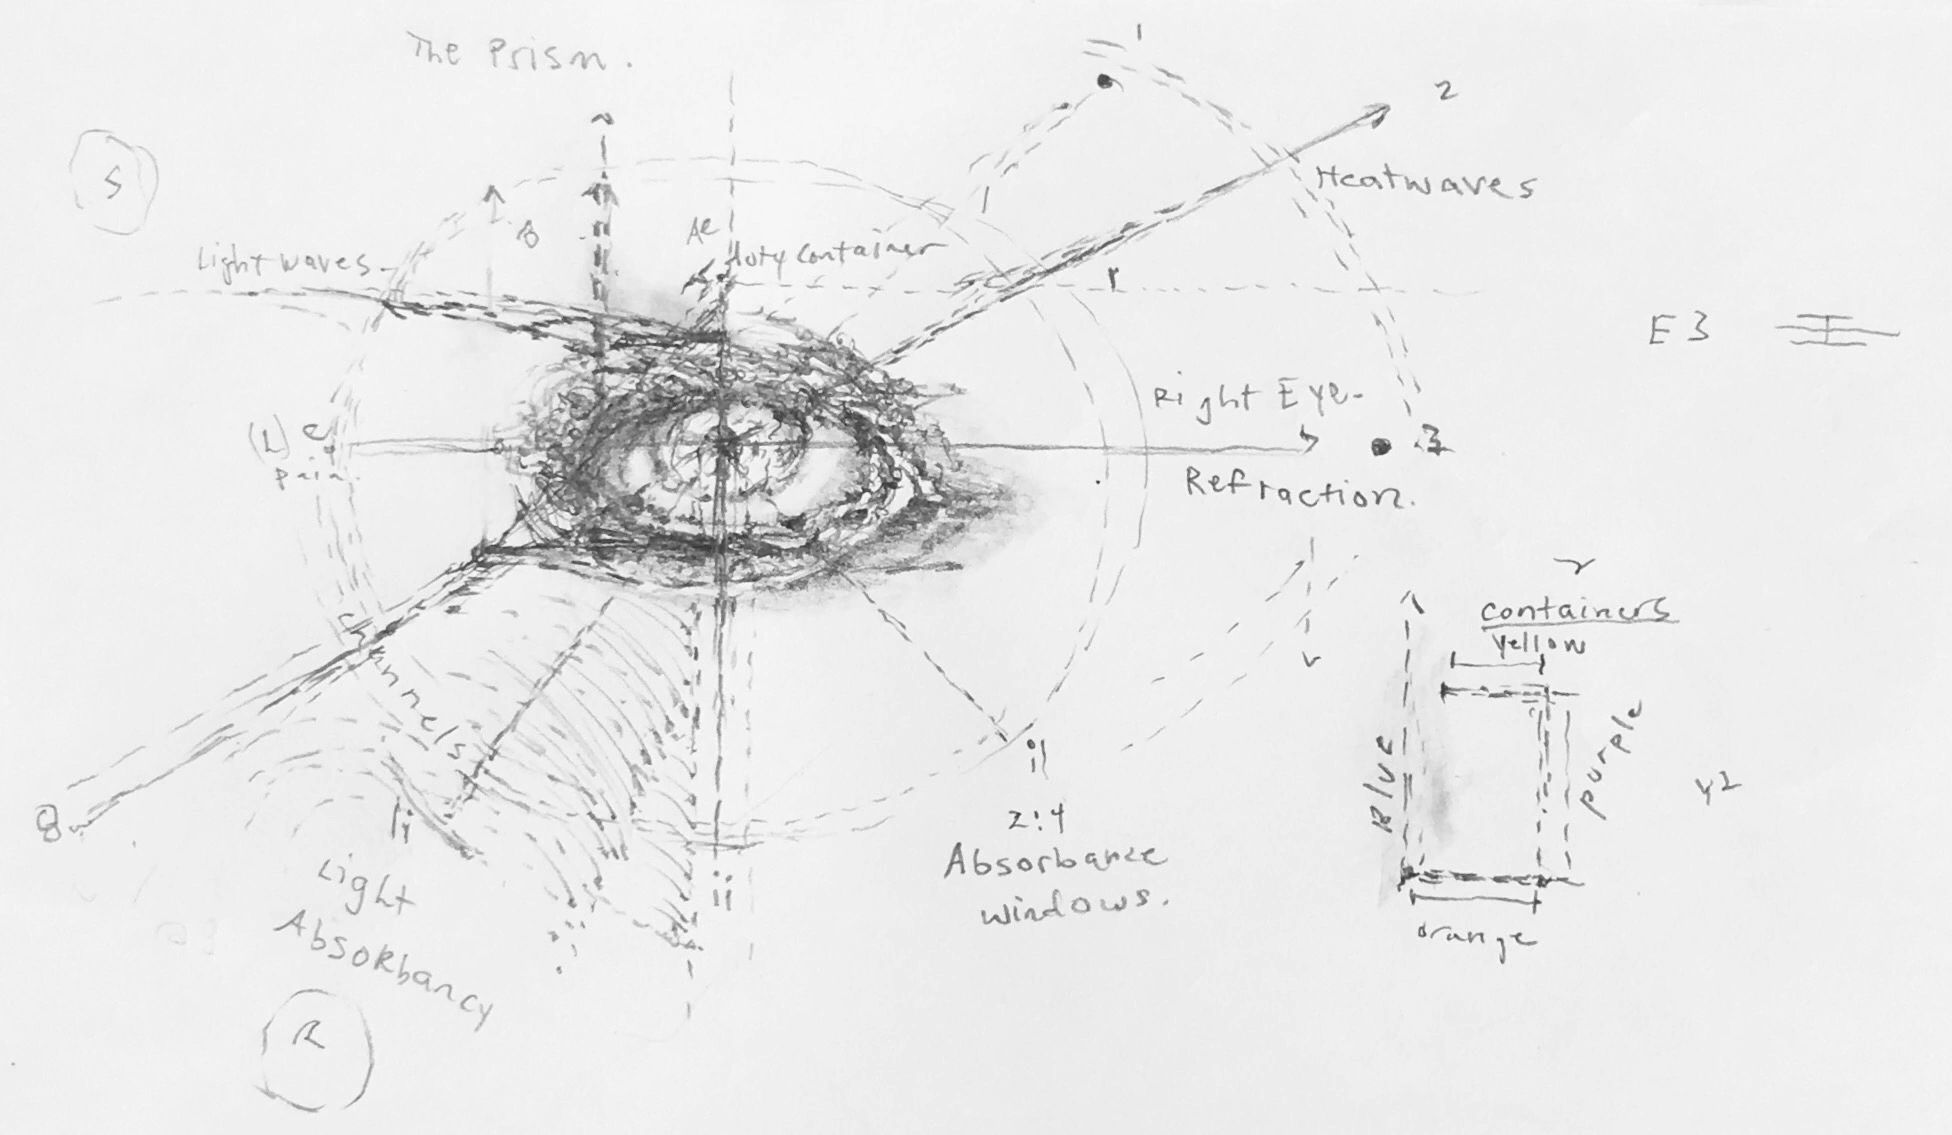 The Prism.
1
2
S
Heatwaves
B
Ae
Light waves
container
r
E 3
Right Eye-
(L) e
pain.
3
Refraction.
r
containers
yellow
channels
purple
Blue
y2
il
8
li
2:4
Absorbance
windows.
ii
Light
Absorbancy
orange
R